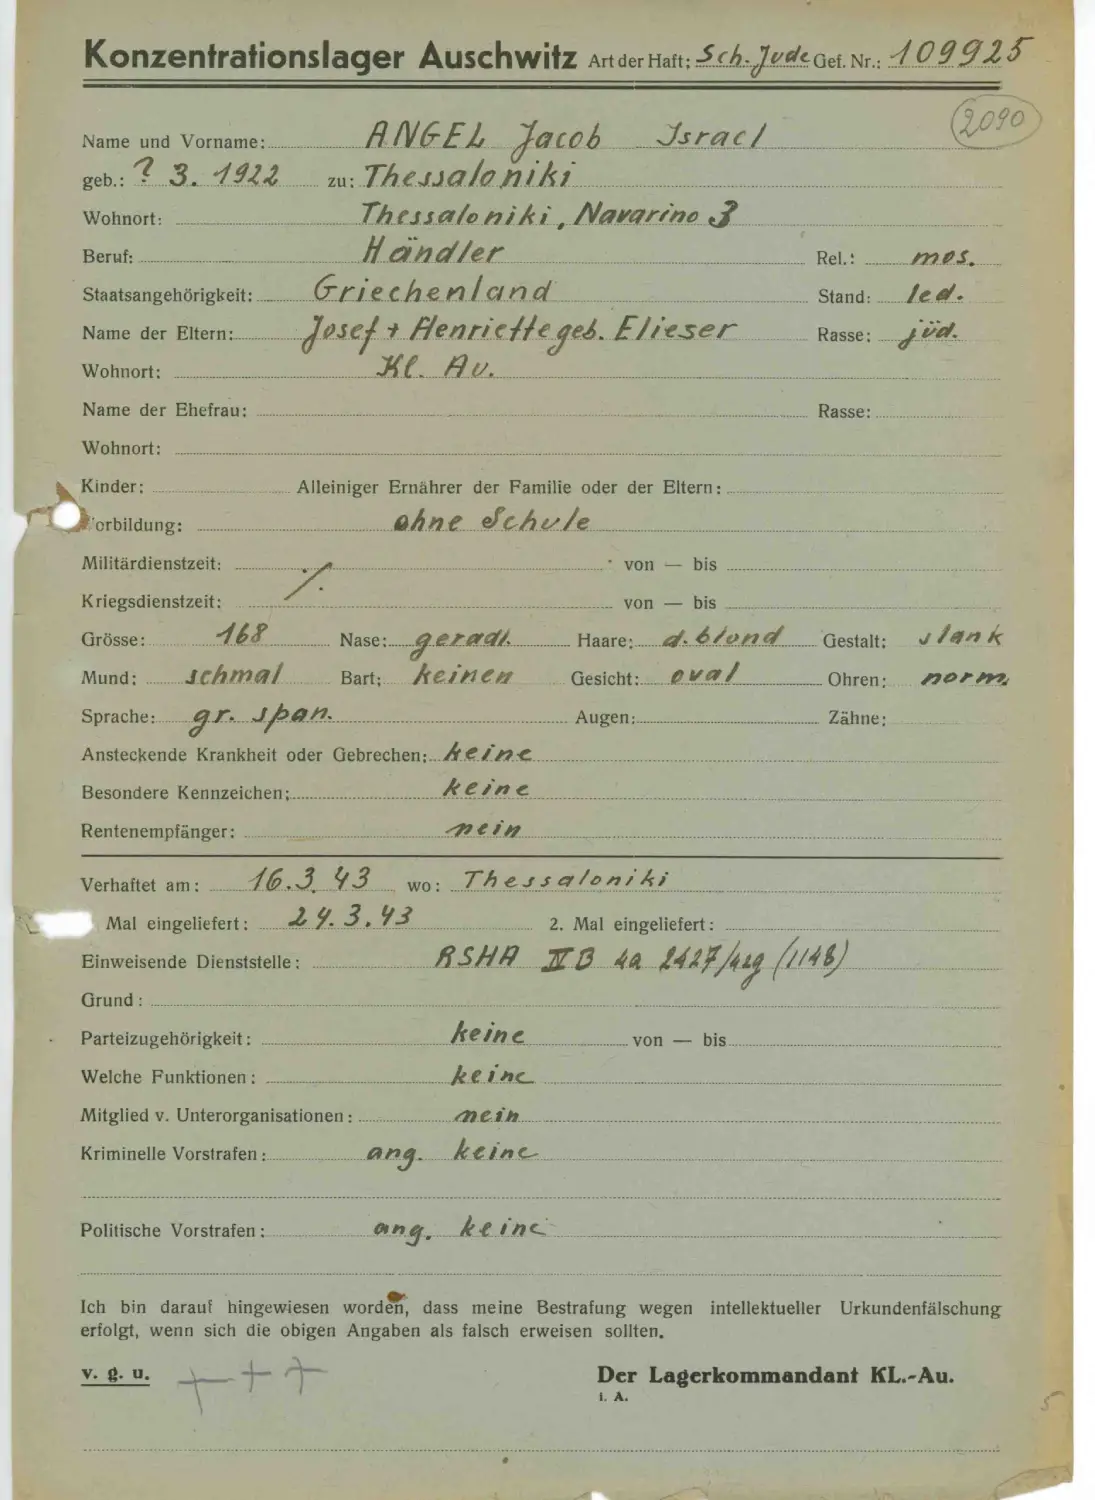 Konzentrationslager Auschwitz Art der Haft: Sch. Jude Gef. Nr.: 109925
2090
Name und Vorname: ANGEL Jacob Israel
geb.: ? 3. 1922 zu: Thessaloniki
Wohnort: Thessaloniki, Navarino 3
Beruf: Händler Rel.: mos.
Staatsangehörigkeit: Griechenland Stand: led.
Name der Eltern: Josef + Henriette geb. Elieser Rasse: jüd.
Wohnort: Kl. Au.
Name der Ehefrau: Rasse:
Wohnort:
Kinder: Alleiniger Ernährer der Familie oder der Eltern:
orbildung: ohne Schule
Militärdienstzeit: von — bis
Kriegsdienstzeit: ·/· von — bis
Grösse: 168 Nase: geradl. Haare: d. blond Gestalt: slank
Mund: schmal Bart: keinen Gesicht: oval Ohren: norm.
Sprache: gr. span. Augen: Zähne:
Ansteckende Krankheit oder Gebrechen: keine
Besondere Kennzeichen: keine
Rentenempfänger: nein
Verhaftet am: 16.3.43 wo: Thessaloniki
Mal eingeliefert: 24.3.43 2. Mal eingeliefert:
Einweisende Dienststelle: RSHA IV B 4a 2427/42g (1148)
Grund:
Parteizugehörigkeit: keine von — bis
Welche Funktionen: keine
Mitglied v. Unterorganisationen: nein
Kriminelle Vorstrafen: ang. keine
Politische Vorstrafen: ang. keine
Ich bin darauf hingewiesen worden, dass meine Bestrafung wegen intellektueller Urkundenfälschung
erfolgt, wenn sich die obigen Angaben als falsch erweisen sollten.
v. g. u. + + + Der Lagerkommandant KL.-Au.
i. A.
5